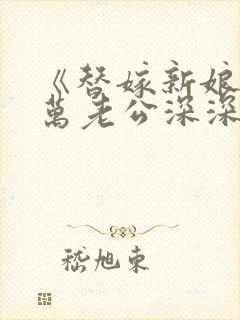 《替嫁新娘
萬老公深深
嵇旭东